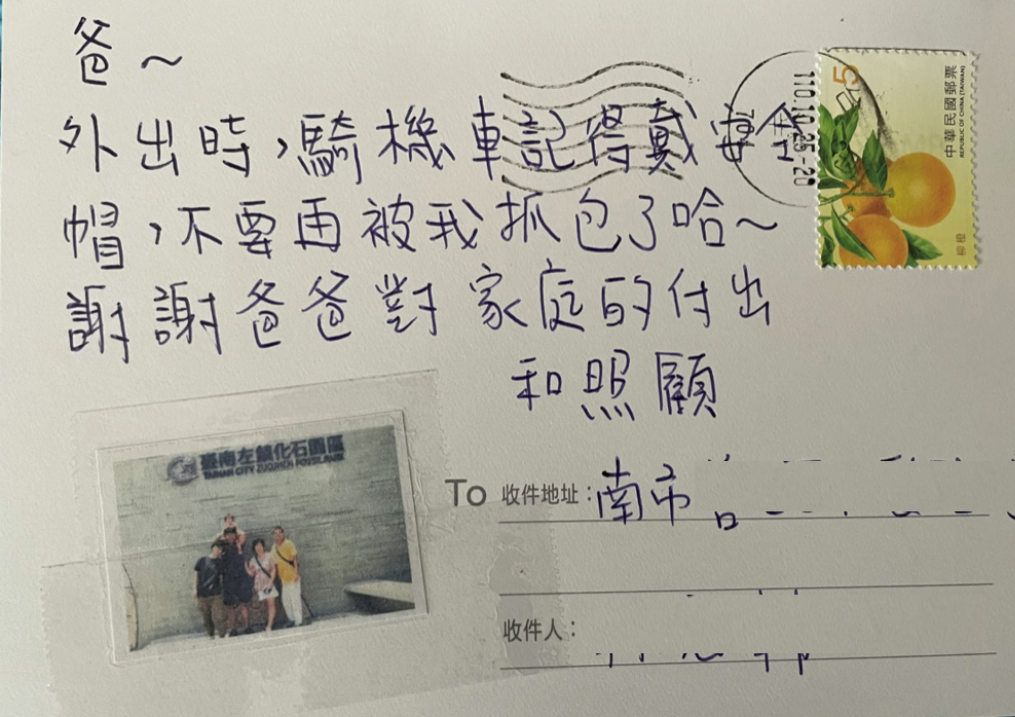 爸~
外出時,騎機車記得戴安全
帽,不要再被我抓包了哈~
謝謝爸爸對家庭的付出
和照顧
5
中華民國郵票
REPUBLIC OF CHINA (TAIWAN)
柳橙
臺南左鎮化石園區
TAINAN CITY ZUOJHEN FOSSIL PARK
To 收件地址:南市
收件人: